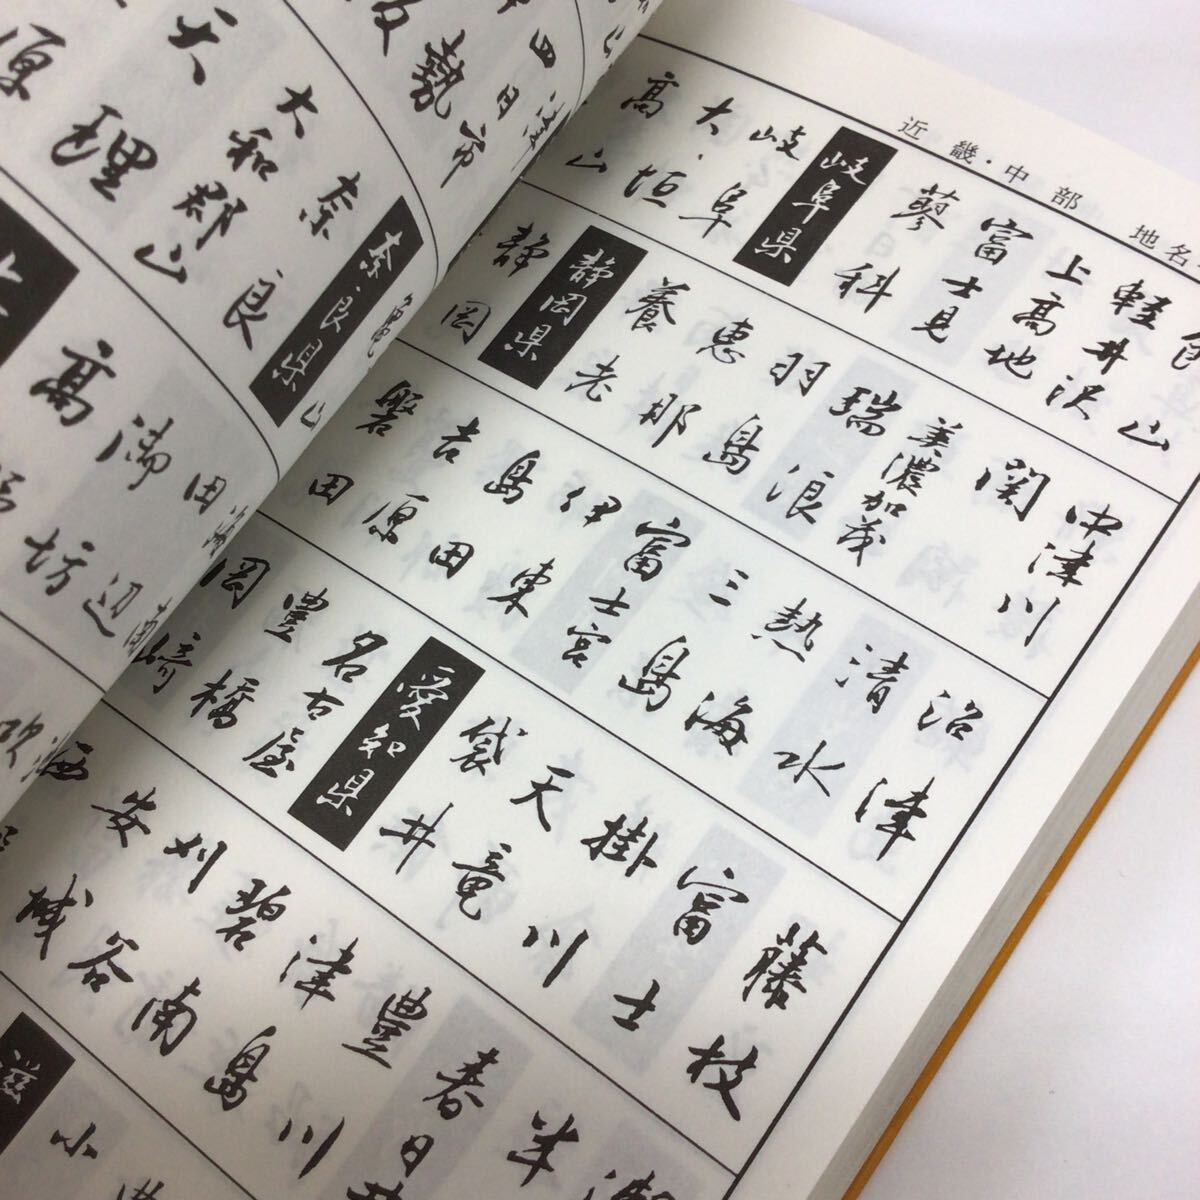 近畿・中部 地名
山
軽井沢
上高地
富士見
蓼科
岐阜県
岐阜
大垣
高山
中津川
関
美濃加茂
瑞浪
羽島
恵那
養老
静岡県
静岡
沼津
清水
熱海
三島
富士宮
伊東
島田
吉原
磐田
藤枝
富士
掛川
天竜
袋井
愛知県
名古屋
豊橋
岡崎
半
春日
豊川
津島
碧南
刈谷
安城
西
小
滋
四日市
勢
奈良県
奈良
大和郡山
天理
原
田辺
御坊
高